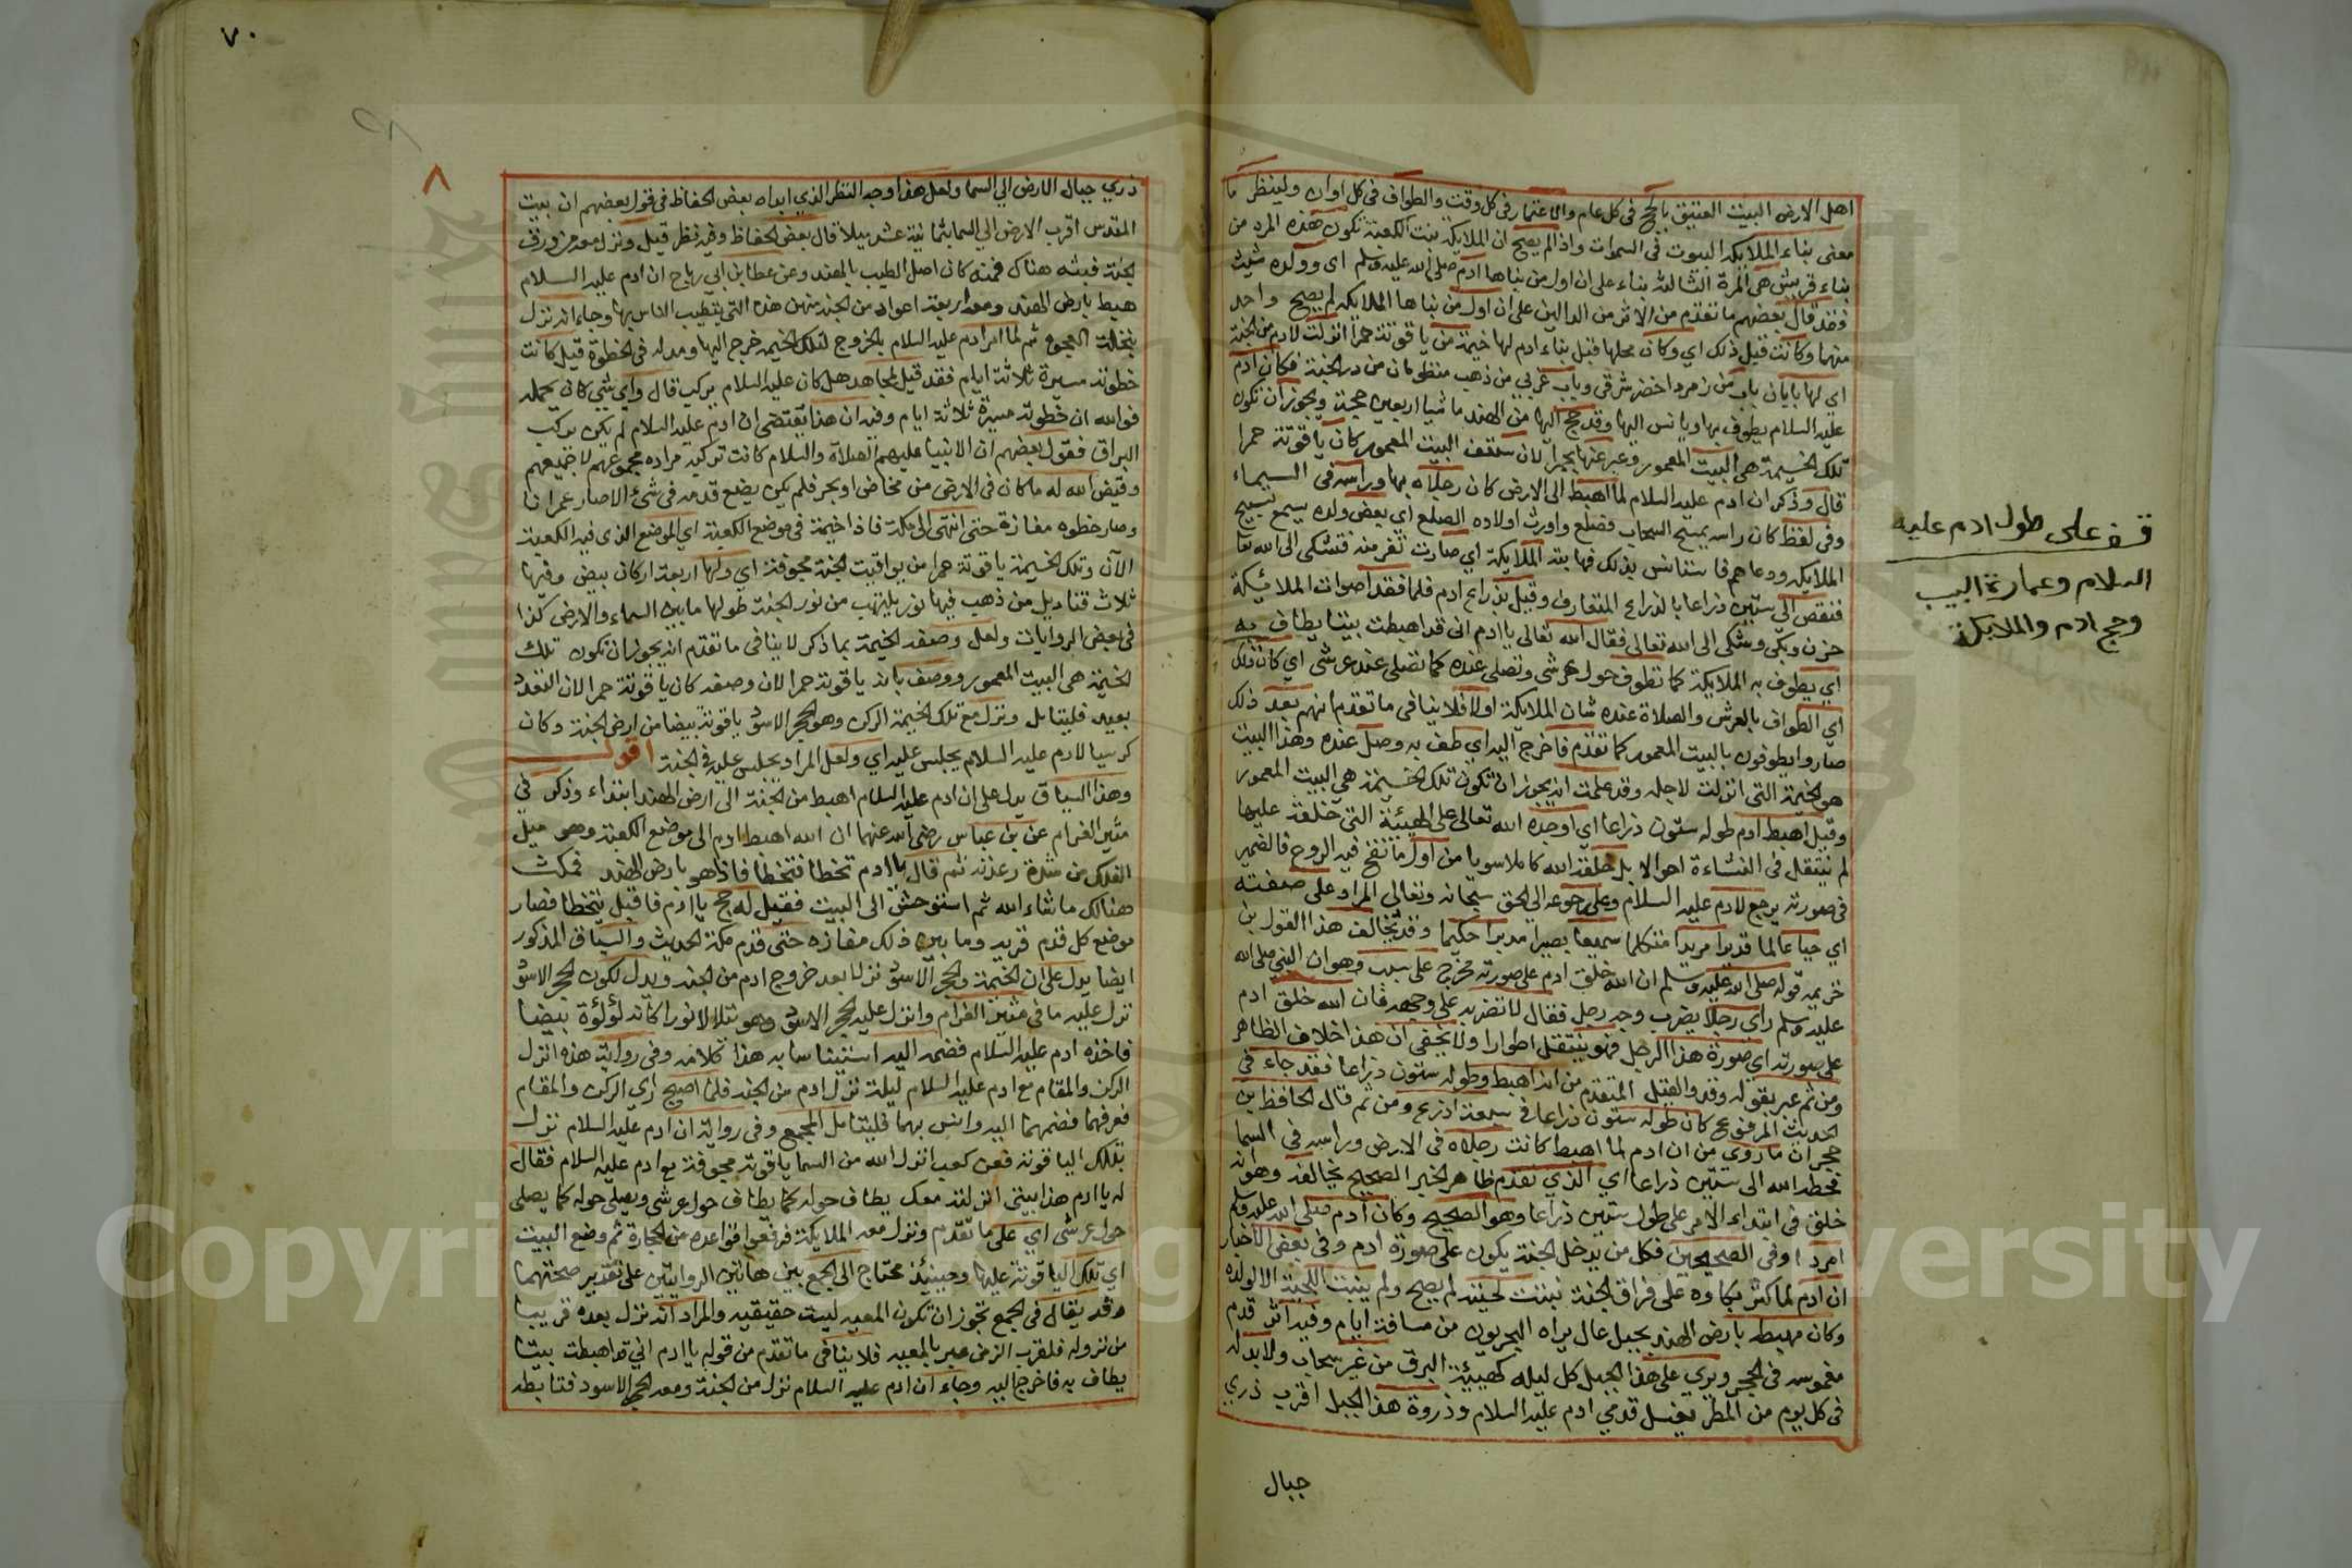 اهل الارض البيت العتيق بالحج فى كل عام والاعتمار فى كل وقت والطواف فى كل اوان ولينظر ما
معنى بناء الملايكة البيوت فى السموات واذا لم يصح ان الملايكة بنت الكعبة تكون هذه المرة من
بناء قريش هى المرة الثالثة بناء على ان اول من بناها ادم صلى الله عليه وسلم اى وولده شيث
فقد قال بعضهم ما تقدم من الاثر من الدالين على ان اول من بناها الملايكة لم يصح واحد
منهما وكانت قبل ذلك اي وكان محلها قبل بناء ادم لها خيمة من ياقوتة حمرا انزلت لادم من الجنة
اى لها بابان باب من زمرد اخضر شرقى وباب غربي من ذهب منظومان من در الجنة فكان ادم
عليه السلام يطوف بها ويانس اليها وقد حج اليها من الهند ماشيا اربعين حجة ويجوز ان تكون
تلك الخيمة هى البيت المعمور وعبر عنها بحمرا لان سقف البيت المعمور كان ياقوتة حمرا
قال وذكر ان ادم عليه السلام لما اهبط الى الارض كان رجلاه بها وراسه فى السماء
وفى لفظ كان راسه يمسح السحاب فصلع واورث اولاده الصلع اى بعض ولده يسمع تسبيح
الملايكة ودعاهم فاستانس بذلك فهابته الملايكة اي صارت تنفر منه فشكى الى الله تعا
فنقص الى ستين ذراعا بالذراع المتعارف وقيل بذراع ادم فلما فقد اصوات الملائيكة
حزن وبكى وشكى الى الله تعالى فقال الله تعالى يا ادم انى قد اهبطت بيتا يطاف به
اي يطوف به الملايكة كما تطوف حول عرشى وتصلى عنده كما تصلى عند عرشى اى كان ذلك
اي الطواف بالعرش والصلاة عنده شان الملايكة اولا فلا ينافى ما تقدم انهم بعد ذلك
صاروا يطوفون بالبيت المعمور كما تقدم فاخرج اليه اى طف به وصل عنده وهذا البيت
هو الخيمة التى انزلت لاجله وقد علمت انه يجوز ان تكون تلك الخيمة هى البيت المعمور
وقيل اهبط ادم طوله ستون ذراعا اى اوجده الله تعالى على الهيئة التى خلقه عليها
لم ينتقل فى النشاءة احوالا بل خلقه الله كاملا سويا من اول ما نفخ فيه الروح فالضمير
فى صورته يرجع لادم عليه السلام وعلى رجوعه الى الحق سبحانه وتعالى المراد على صفته
اي حيا عالما قديرا مريدا متكلما سميعا بصيرا مدبرا حكيما وقد يخالف هذا القول بن
خزيمه قوله صلى الله عليه وسلم ان الله خلق ادم على صورته مخرج على سبب وهو ان النبى صلى الله
عليه وسلم راى رجلا يضرب وجه رجل فقال لا تضربه على وجهه فان الله خلق ادم
على صورته اى صورة هذا الرجل فهو ينتقل اطوارا ولا يخفى ان هذا خلاف الظاهر
ومن ثم عبر بقوله وقد والقيل المتقدم من انه اهبط وطوله ستون ذراعا فقد جاء فى
الحديث المرفوع كان طوله ستون ذراعا فى سبعة اذرع ومن ثم قال الحافظ بن
حجر ان ما روى من ان ادم لما اهبط كانت رجلاه فى الارض وراسه فى السما
فحطه الله الى ستين ذراعا اي الذي تقدم ظاهر الخبر الصحيح يخالفه وهو انه
خلق فى ابتداء الامر على طول ستين ذراعا وهو الصحيح وكان ادم صلى الله عليه وسلم
امردا وفى الصحيحين فكل من يدخل الجنة يكون على صورة ادم وفى بعض الاخبار
ان ادم لما كثر بكاوه على فراق الجنة نبتت لحيته لم يصح ولم ينبت اللحية الا لولده
وكان مهبطه بارض الهند بجبل عال يراه البحريون من مسافة ايام وفيه اثر قدم
مغموسه فى الحجر ويرى على هذا الجبل كل ليله كهيئة البرق من غير سحاب ولا بد له
فى كل يوم من المطر يغسل قدمي ادم عليه السلام وذروة هذا الجبل اقرب ذري
جبال
قف على طول ادم عليه
السلام وعمارة البيت
وحج ادم والملايكة
٧٠
٨
ذري جبال الارض الي السما ولعل هذا وجه النظر الذي ابداه بعض الحفاظ فى قول بعضهم ان بيت
المقدس اقرب الارض الي السما بثمانية عشر ميلا قال بعض الحفاظ وفيه نظر قيل ونزل معه من ورق
الجنة فبثه هناك فمنه كان اصل الطيب بالهند وعن عطا بن ابي رباح ان ادم عليه السلام
هبط بارض الهند ومعه اربعة اعواد من الجنة منهن هذه التى يتطيب الناس بها وجاء انه نزل
بنخلة العجوة ثم لما امر ادم عليه السلام بالخروج لتلك الخيمة خرج اليها ومد له فى الخطوة قيل كانت
خطوته مسيرة ثلاثة ايام فقد قيل لمجاهد هل كان عليه السلام يركب قال واي شي كان يحمله
فوالله ان خطوته مسيرة ثلاثة ايام وفيه ان هذا يقتضى ان ادم عليه السلام لم يكن يركب
البراق فقول بعضهم ان الانبيا عليهم الصلاة والسلام كانت تركبه مراده مجموعهم لا جميعهم
وقيض الله له ما كان فى الارض من مخاض او بحر فلم يكن يضع قدمه فى شئ الا صار عمرانا
وصار خطوه مفازة حتى انتهى الى مكة فاذا خيمة في موضع الكعبة اي الموضع الذى فيه الكعبة
الآن وتلك الخيمة ياقوتة حمرا من يواقيت الجنة مجوفة اي ولها اربعة اركان بيض وفيها
ثلاث قناديل من ذهب فيها نور يلتهب من نور الجنة طولها ما بين السماء والارض كذا
فى بعض الروايات ولعل وصف الخيمة بما ذكر لا ينافى ما تقدم انه يجوز ان تكون تلك
الخيمة هى البيت المعمور ووصف بانه ياقوتة حمرا لان وصفه كان ياقوتة حمرا لان التعدد
بعيد فليتامل ونزل مع تلك الخيمة الركن وهو الحجر الاسود ياقوتة بيضا من ارض الجنة وكان
كرسيا لادم عليه السلام يجلس عليه اي ولعل المراد يجلس عليه فى الجنة اقول
وهذا السياق يدل على ان ادم عليه السلام اهبط من الجنة الى ارض الهند ابتداء وذكر فى
مثير الغرام عن بن عباس رضى الله عنهما ان الله اهبط ادم الى موضع الكعبة وهو مثل
الفلك من شدة رعدته ثم قال يا ادم تخطا فتخطا فاذا هو بارض الهند فمكث
هنالك ما شاء الله ثم استوحش الى البيت فقيل له حج يا ادم فاقبل يتخطا فصار
موضع كل قدم قرية وما بين ذلك مفازه حتى قدم مكة الحديث والسياق المذكور
ايضا يدل على ان الخيمة والحجر الاسود نزلا بعد خروج ادم من الجنة ويدل لكون الحجر الاسود
نزل عليه ما فى مثير الغرام وانزل عليه الحجر الاسود وهو يتلالا نورا كانه لؤلؤة بيضا
فاخذه ادم عليه السلام فضمه اليه استيناسا به هذا كلامه وفى رواية هذه انزل
الركن والمقام مع ادم عليه السلام ليلة نزل ادم من الجنة فلما اصبح راي الركن والمقام
فعرفهما فضمهما اليه وانس بهما فليتامل الجمع وفى رواية ان ادم عليه السلام نزل
بتلك الياقوتة فعن كعب انزل الله من السما ياقوتة مجوفة مع ادم عليه السلام فقال
له يا ادم هذا بيتى انزلته معك يطاف حوله كما يطاف حول عرشى ويصلى حوله كما يصلى
حول عرشى اي على ما تقدم ونزل معه الملايكة فرفعوا قواعده من الحجارة ثم وضع البيت
اي تلك الياقوتة عليها وحينئذ محتاج الى الجمع بين هاتين الروايتين على تقدير صحتهما
وقد يقال فى الجمع تجوز ان تكون المعيه ليست حقيقيه والمراد انه نزل بعده قريبا
من نزوله فلقرب الزمن عبر بالمعيه فلا ينافى ما تقدم من قوله يا ادم انى قد اهبطت بيتا
يطاف به فاخرج اليه وجاء ان ادم عليه السلام نزل من الجنة ومعه الحجر الاسود فتابطه